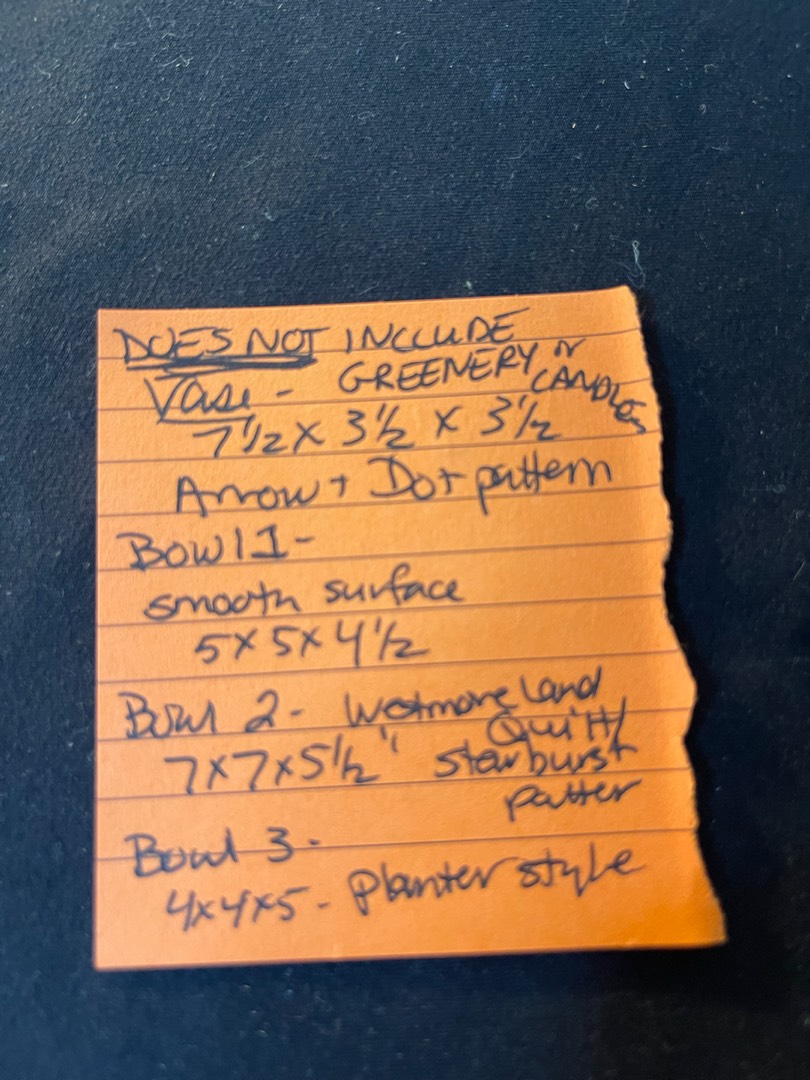 DOES NOT INCLUDE
GREENERY or
CANDLES
Vase -
7 1/2 x 3 1/2 x 3 1/2
Arrow + Dot pattern
Bowl 1-
smooth surface
5 x 5 x 4 1/2
Bowl 2 - Westmoreland
Quilt/
7 x 7 x 5 1/2" starburst
patter
Bowl 3 -
4 x 4 x 5 - Planter style